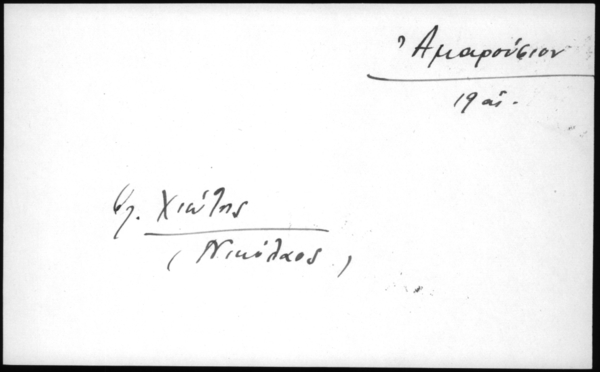 Ἀμαρούσιον
19 αἰ.
βλ. Χιώτης
(Νικόλαος)